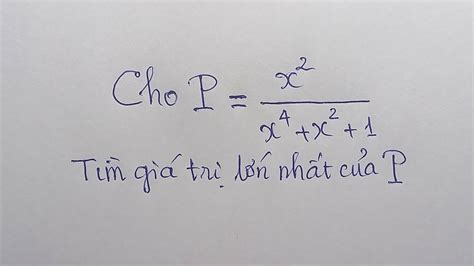 Cho P = x²/(x⁴+x²+1)
Tìm giá trị lớn nhất của P